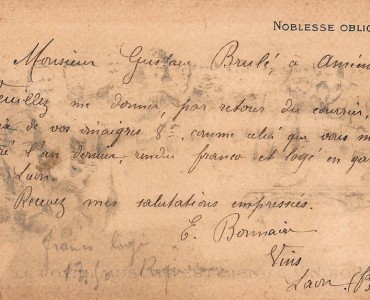 NOBLESSE OBLIG
Monsieur Gustave Brulé, à Amien
Veuillez me donner, par retour du courrier,
de vos vinaigres 8°, comme celui que vous m
l'an dernier, rendu franco et logé en ga
Laon.
Recevez mes salutations empressées.
E. Bonnaire
Vins
Laon (B
franco logé